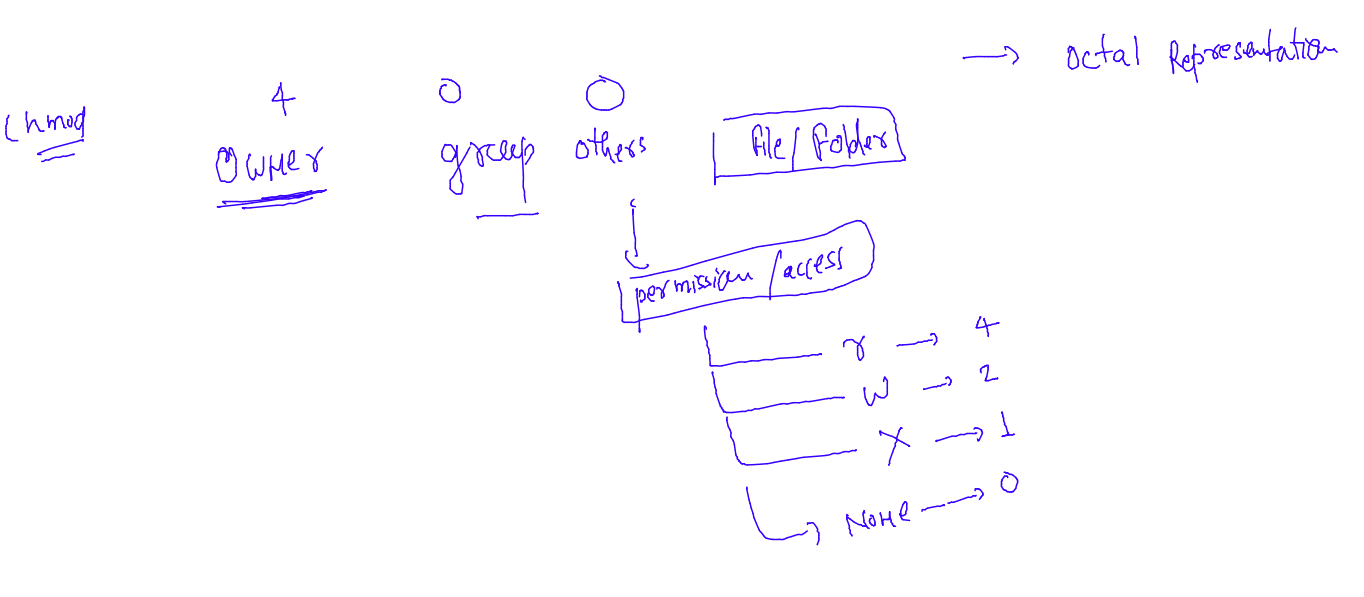 → Octal Representation
4 0 0
chmod
Owner group others file/folder
permission/access
r → 4
w → 2
x → 1
None → 0